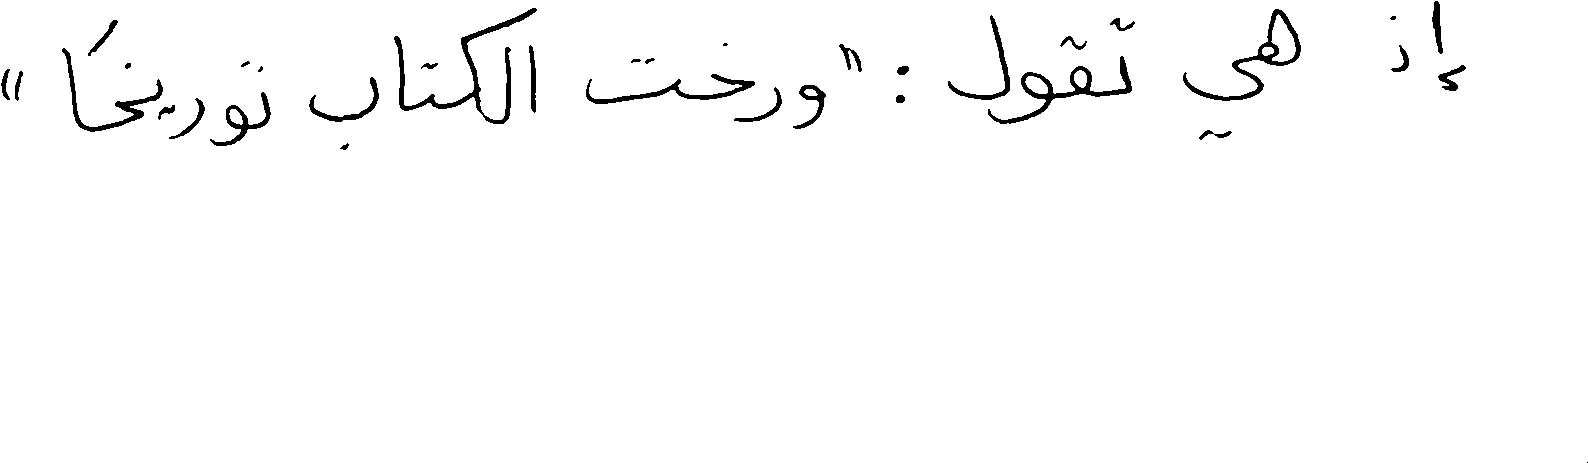 إذ هي تقول : "ورخت الكتاب توريخًا"